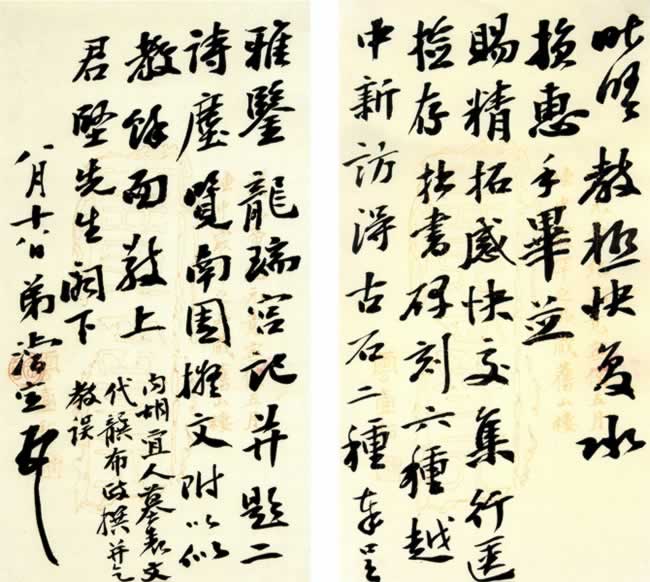 昨晤教極快复承
損惠手畢並
賜精拓感快交集行匧
撿存拙書碑刻六種越
中新訪得古石二種奉呈
雅鑒龍瑞宮記并題二
詩塵覽南園文附以似
教餘面敬上
君堅先生閣下
八月十八日弟濬宣
內胡宜人墓表文
代龔布政撰并乞
教誤